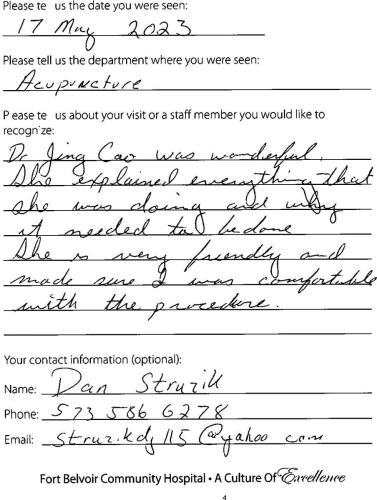 Please te us the date you were seen:
17 May 2023
Please tell us the department where you were seen:
Acupuncture
P ease te us about your visit or a staff member you would like to
recognize:
Dr Jing Cao was wonderful.
She explained everything that
she was doing and why
it needed to be done
She is very friendly and
made sure I was comfortable
with the procedure.
Your contact information (optional):
Name: Dan Struzik
Phone: 573 586 6278
Email: struzikdj115@yahoo com
Fort Belvoir Community Hospital • A Culture Of Excellence
4